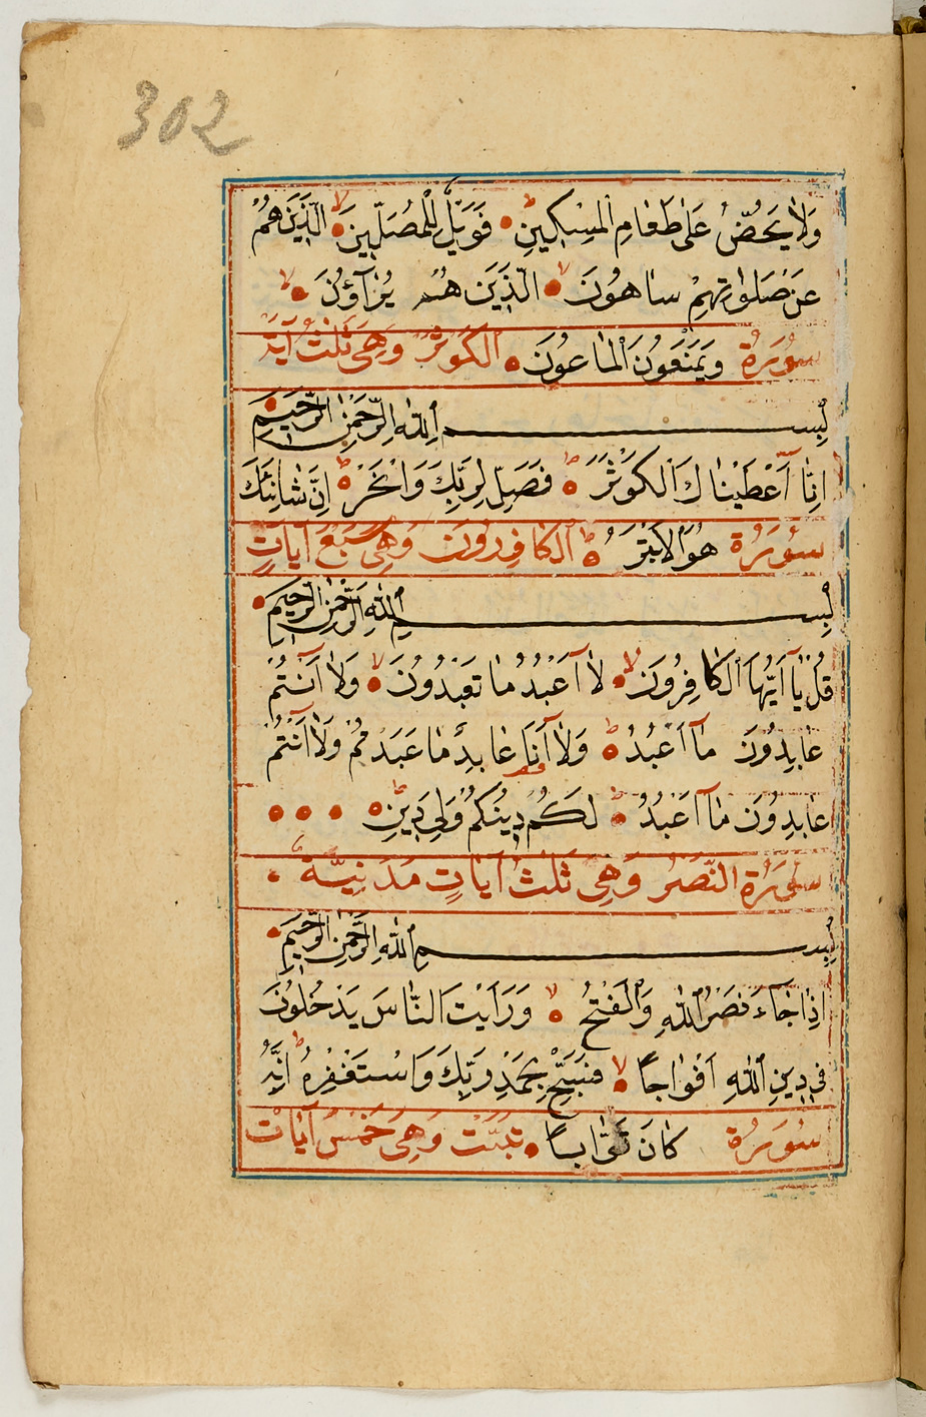 302
وَلَا يَحُضُّ عَلٰى طَعَامِ الْمِسْكِينِ فَوَيْلٌ لِلْمُصَلِّينَ الَّذِينَ هُمْ
عَنْ صَلَوَاتِهِمْ سَاهُونَ الَّذِينَ هُمْ يُرَآؤُنَ
سُورَةُ وَيَمْنَعُونَ الْمَاعُونَ الْكَوْثَرْ وَهِىَ ثَلٰثُ آيَة
بِسْمِ اللهِ الرَّحْمٰنِ الرَّحِيمِ
اِنَّا اَعْطَيْنَاكَ الْكَوْثَرَ فَصَلِّ لِرَبِّكَ وَانْحَرْ اِنَّ شَانِئَكَ
سُورَةُ هُوَ الْاَبْتَرُ الْكَافِرُونَ وَهِىَ سَبْعُ آيَاتٍ
بِسْمِ اللهِ الرَّحْمٰنِ الرَّحِيمِ
قُلْ يَا اَيُّهَا الْكَافِرُونَ لَا اَعْبُدُ مَا تَعْبُدُونَ وَلَا اَنْتُمْ
عَابِدُونَ مَا اَعْبُدُ وَلَا اَنَا عَابِدٌ مَا عَبَدْتُمْ وَلَا اَنْتُمْ
عَابِدُونَ مَا اَعْبُدُ لَكُمْ دِينُكُمْ وَلِىَ دِينِ
سُورَةُ النَّصْرِ وَهِىَ ثَلٰثُ آيَاتٍ مَدَنِيَّة
بِسْمِ اللهِ الرَّحْمٰنِ الرَّحِيمِ
اِذَا جَآءَ نَصْرُ اللهِ وَالْفَتْحُ وَرَاَيْتَ النَّاسَ يَدْخُلُونَ
فِى دِينِ اللهِ اَفْوَاجًا فَسَبِّحْ بِحَمْدِ رَبِّكَ وَاسْتَغْفِرْهُ اِنَّهُ
سُورَةُ كَانَ تَوَّابًا تَبَّتْ وَهِىَ خَمْسُ آيَاتٍ